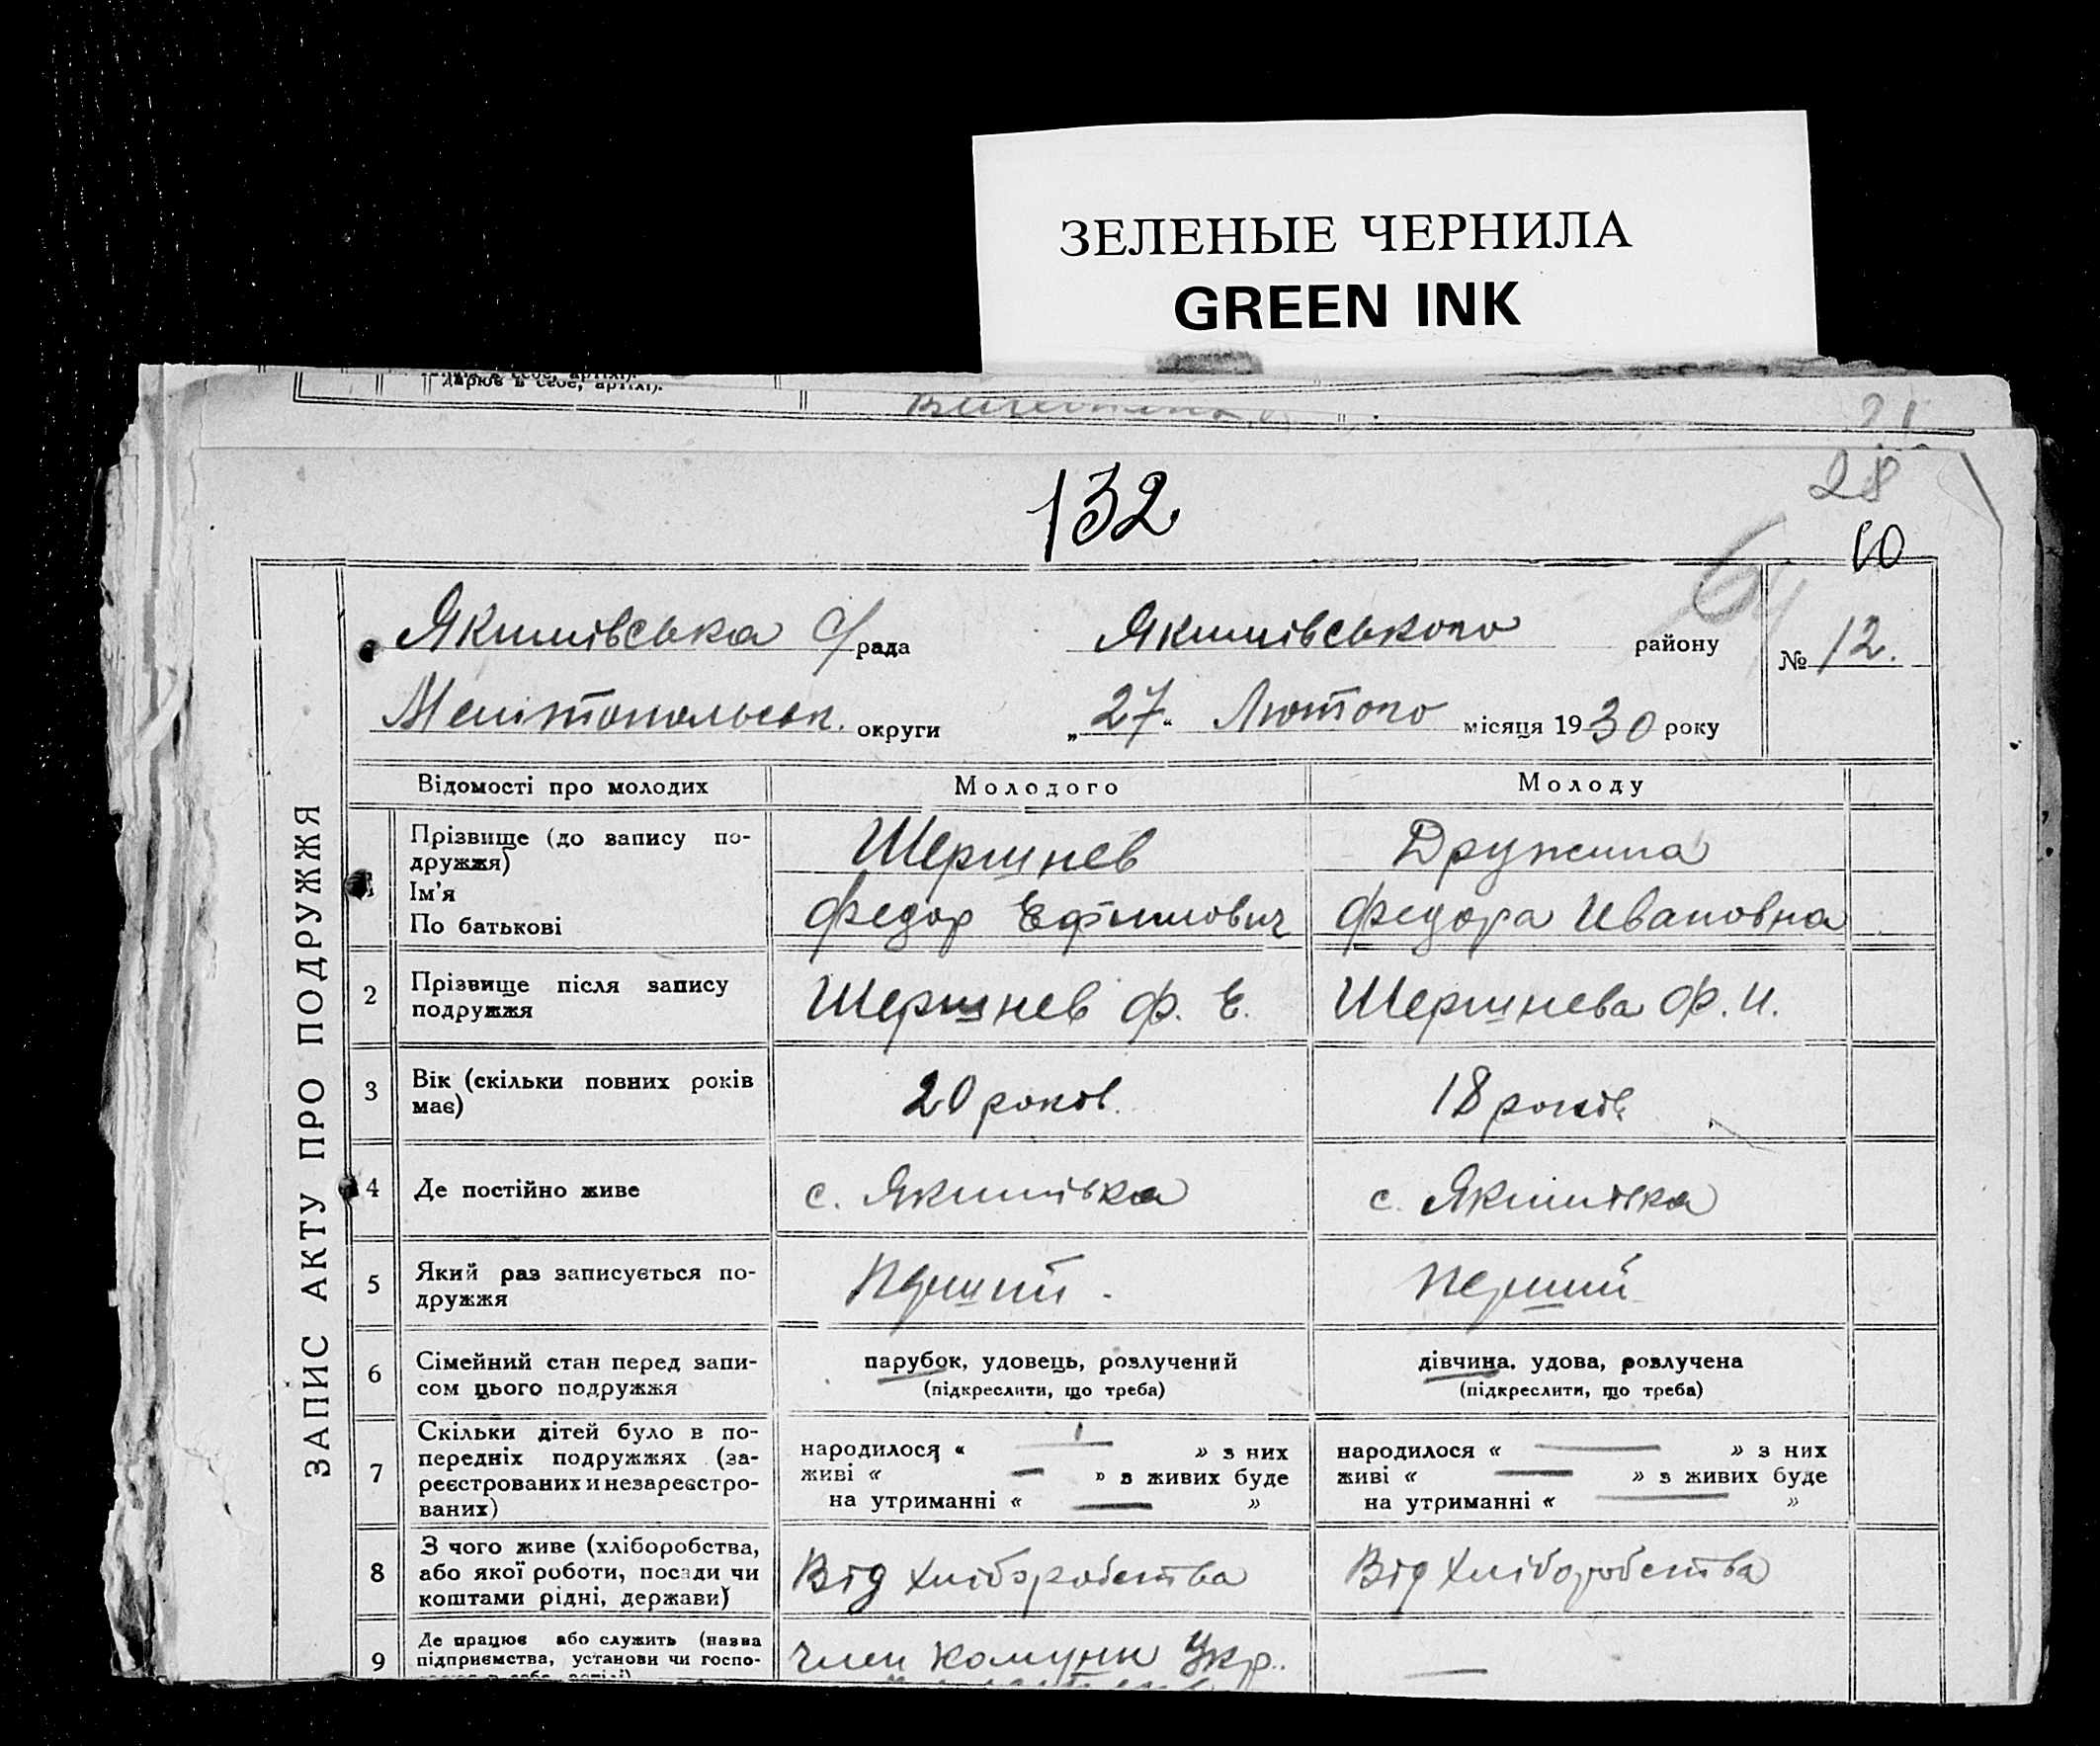 ЗЕЛЕНЫЕ ЧЕРНИЛА
GREEN INK
дарює в своє, артілі).
21
28
132
60
Якимівська С/рада Якимівського району № 12.
Мелітопольськ. округи „27“ Лютого місяця 1930 року
ЗАПИС АКТУ ПРО ПОДРУЖЖЯ
Відомості про молодих Молодого Молоду
1
Прізвище (до запису по-
дружжя)
Ім'я
По батькові
Шершнев
Федор Ефимович
Дружина
Федора Ивановна
2
Прізвище після запису
подружжя
Шершнев Ф. Е.
Шершнева Ф. И.
3
Вік (скільки повних років
має)
20 років.
18 років
4
Де постійно живе
с. Якимівка
с. Якимівка
5
Який раз записується по-
дружжя
Перший.
Перший
6
Сімейний стан перед запи-
сом цього подружжя
парубок, удовець, розлучений
(підкреслити, що треба)
дівчина, удова, розлучена
(підкреслити, що треба)
7
Скільки дітей було в по-
передніх подружжях (за-
реєстрованих и незареєстро-
ваних)
народилося « — » з них
живі « — » з живих буде
на утриманні « — »
народилося « — » з них
живі « — » з живих буде
на утриманні « — »
8
З чого живе (хліборобства,
або якої роботи, посади чи
коштами рідні, держави)
Від хліборобства
Від хліборобства
9
Де працює або служить (назва
підприємства, установи чи госпо-
член комуни Укр.
—